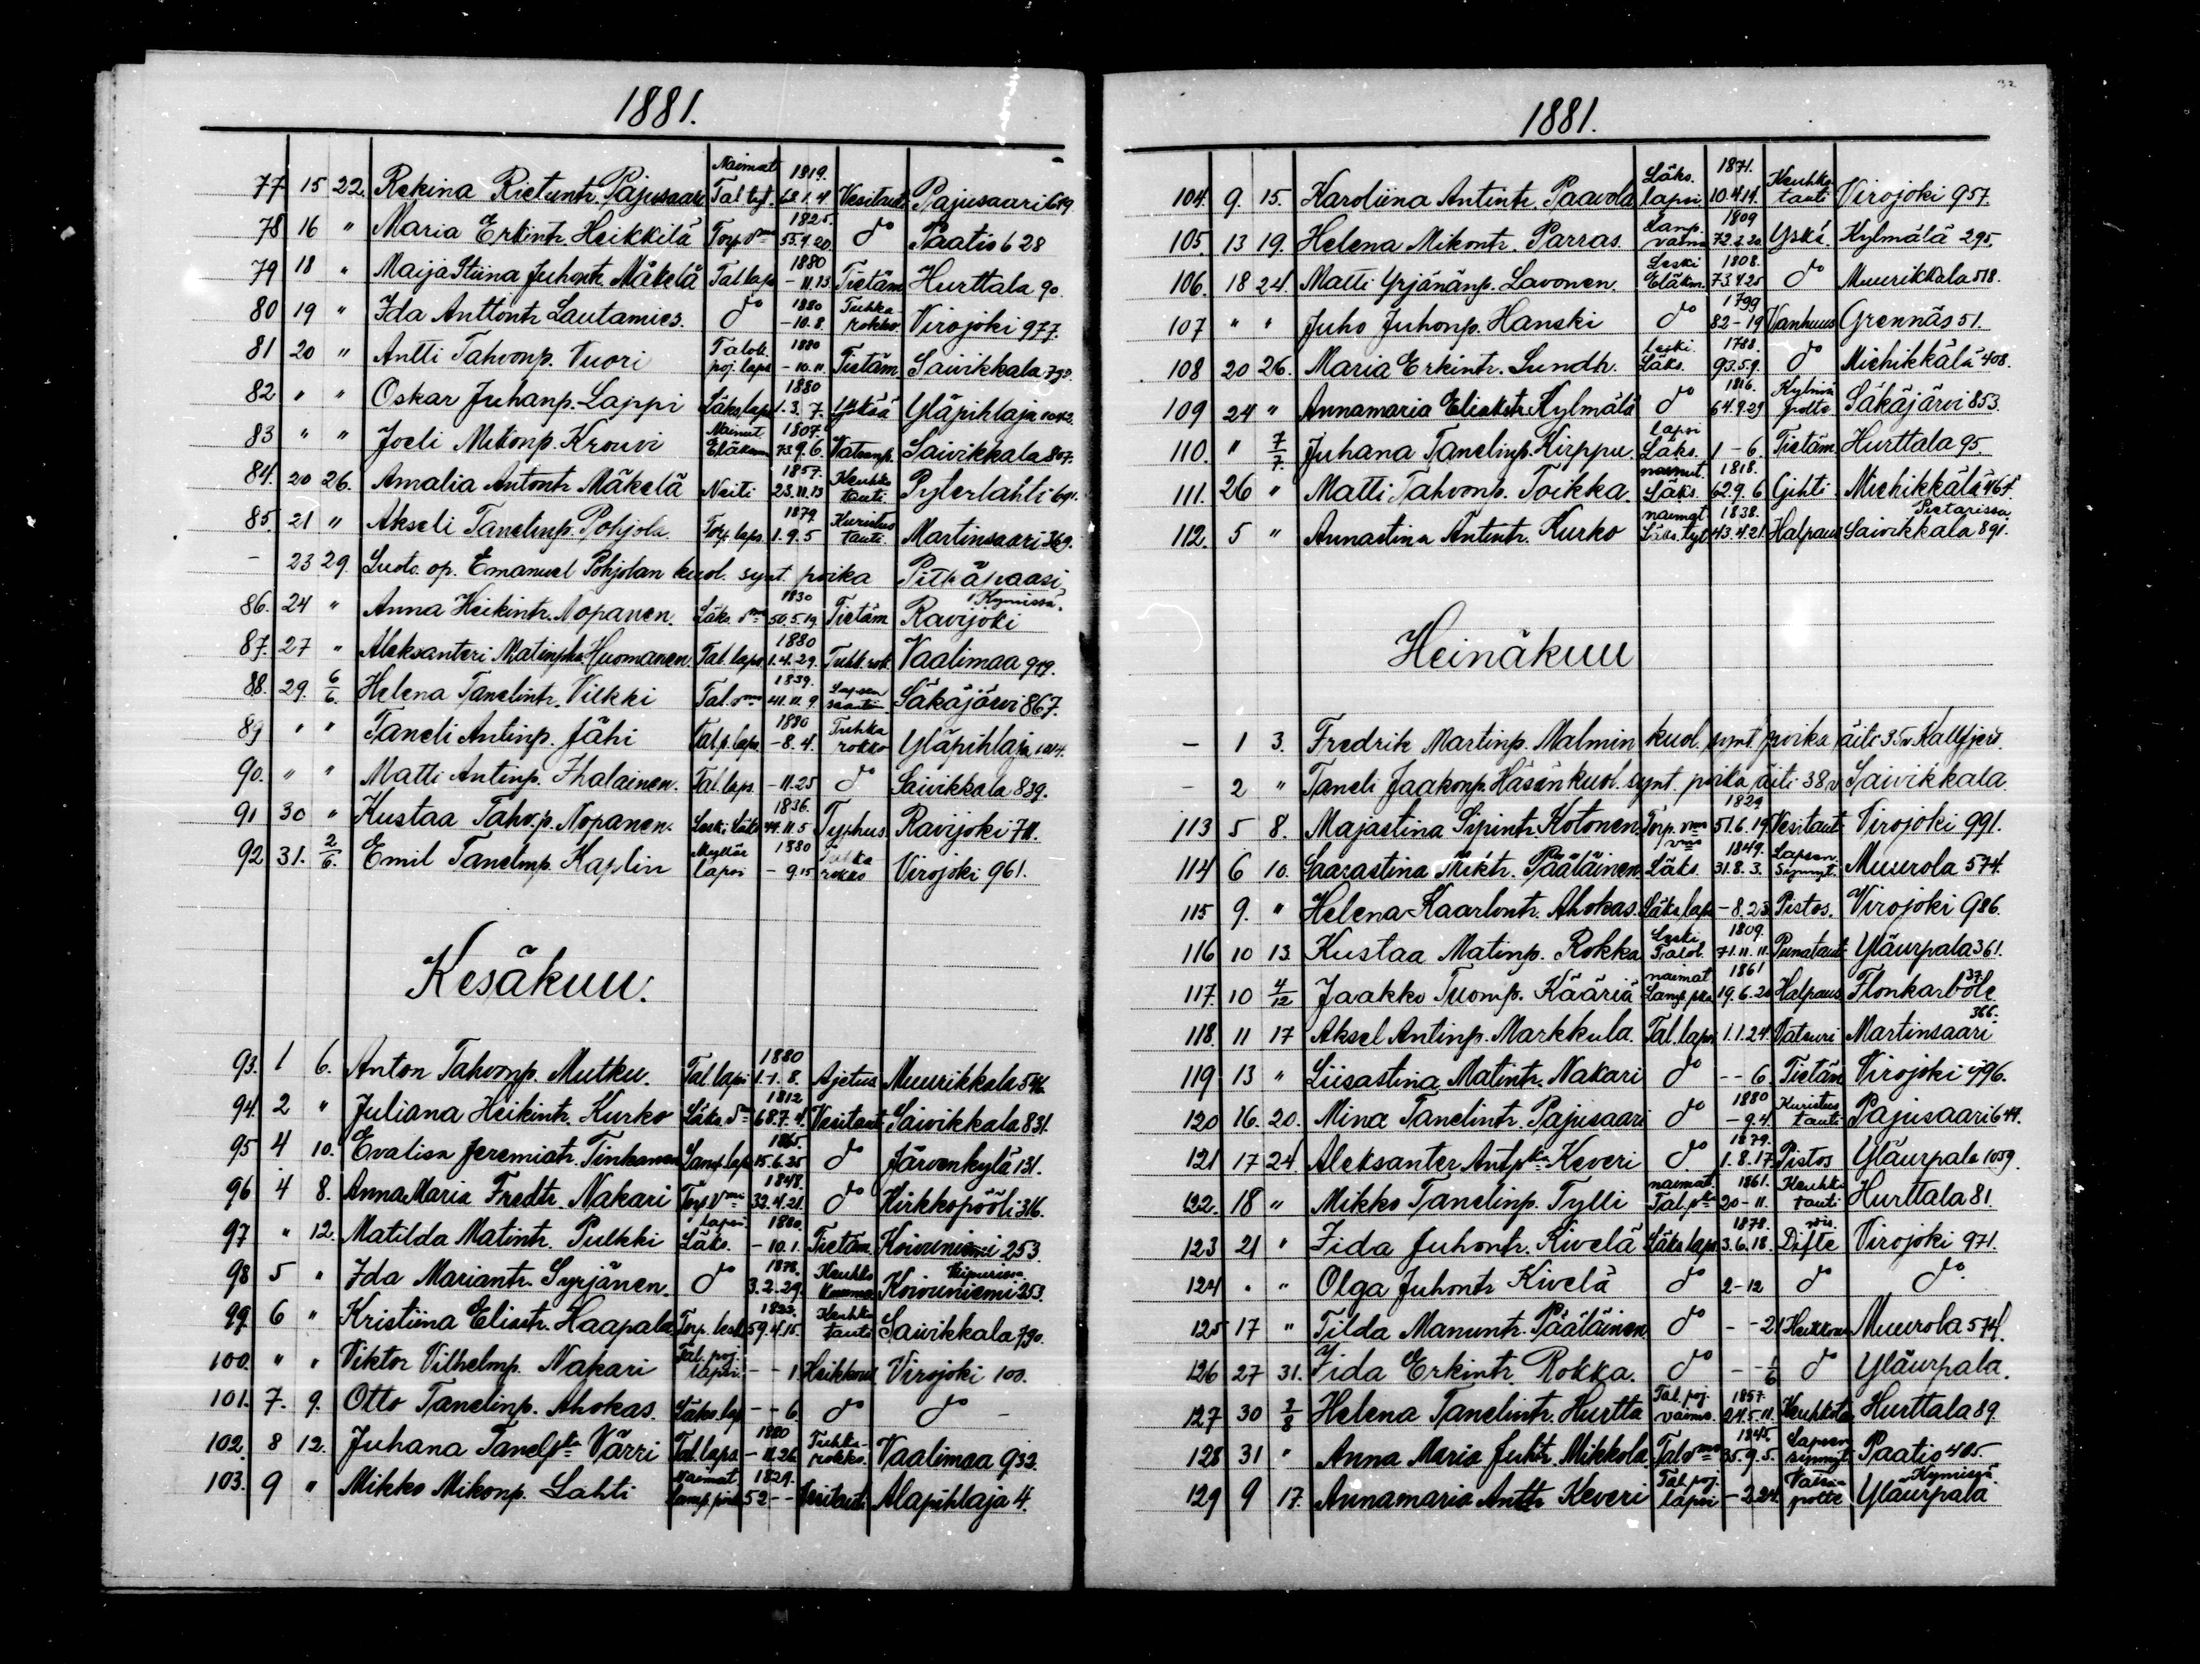 1881.
77 15 22. Rekina Rietuntr. Pajusaari Naimat Tal. tyt. 1819. 62.1.4 Vesitauti Pajusaari 649.
78 16 " Maria Erkintr Heikkilä Torp. vmo 1825. 55.9.20. do Paatio 628
79 18 " Maija Stiina Juhontr Mäkelä Tal laps 1880 - 11.13 Tietäm Hurttala 90.
80 19 " Ida Anttontr Lautamies. do 1880 -10.8. Tuhkarokko. Virojoki 977.
81 20 " Antti Tahvonp. Vuori Talok. poj. laps 1880 -10.11. Tietäm Saivikkala 792.
82 " " Oskar Juhanp. Lappi Läks laps 1880 1.3.7. Yskää Yläpihlaja 1042.
83 " " Joeli Mikonp. Krouvi Naimut Eläkem 1807. 73.9.6. Vatsanp. Saivikkala 807.
84. 20 26. Amalia Antontr Mäkelä Neiti 1857. 23.11.13 Keuhkotauti Pyterlahti 691.
85. 21 " Akseli Tanelinp. Pohjola Torp. laps. 1879 1.9.5 Kuristustauti Martinsaari 369.
- 23 29. Suoto. op. Emanuel Pohjolan kuol. synt. poika Pitkäpaasi
86. 24 " Anna Heikintr. Nopanen. Läks. vmo 1830 50.5.19 Tietäm Kymissä. Ravijoki
87. 27 " Aleksanteri Matinpka Huomanen. Tal. laps 1880 1.4.29. Tuhk. rok. Vaalimaa 949.
88. 29. 6/6. Helena Tanelintr. Vilkki Tal. vmo 1839. 41.11.9. Lapsen saanti Säkäjärvi 867.
89 " " Taneli Antinp. Jähi Tal.p. laps. 1880 -8.4. Tuhkarokko Yläpihlaja 1014.
90. " " Matti Antinp. Ihalainen. Tal. laps. -11.25 do Saivikkala 839.
91 30 " Kustaa Tahvp. Nopanen. Leski Läks 1836. 44.11.5 Typhus Ravijoki 711.
92 31. 2/6. Emil Tanelinp. Kaplin Myllär lapsi 1880 - 9.15 Tuhkarokko Virojoki 961.
Kesäkuu.
93. 1 6. Anton Tahvonp. Mutku. Tal. lapsi 1880 1.1.8. Ajetus Muurikkala 546.
94. 2 " Juliana Heikintr. Kurko Läks. vmo 1812 68.7.4. Vesitauti Saivikkala 831.
95 4 10. Evalisa Jeremiatr. Tinkanen Lamp. laps 1865. 15.6.25 do Järvenkylä 131.
96 4 8. Anna Maria Fredtr. Nakari Torp. vmo 1848. 32.4.21. do Kirkkopööli 316.
97 " 12. Matilda Matintr. Pulkki lapsi Läks. 1880. -10.1. Tietäm. Koivuniemi 253
98 5 " Ida Mariantr. Syrjänen. do 1878. 3.2.29. Keuhko kuume Viipurissa Koivuniemi 253.
99 6 " Kristiina Elistr. Haapala Torp. leski 1822. 59.4.15. Keuhkotauti Saivikkala 790.
100. " " Viktor Vilhelmp. Nakari Tal. poj. lapsi. - - 1. Heikkous. Virojoki 100.
101. 7. 9. Otto Tanelinp. Ahokas. Läks. lap - - 6. do do -
102. 8 12. Juhana Tanelpka Värri Tal. laps 1880 -11.26 Tuhkarokko. Vaalimaa 932.
103. 9 " Mikko Mikonp. Lahti Naimat Lamp. poik 1829. 52 - - Vesitauti Alapihlaja 4.
32
1881.
104. 9. 15. Karoliina Antintr. Paavola Läks. lapsi 1871. 10.4.14. Keuhkotauti Virojoki 957.
105. 13 19. Helena Mikontr. Parras. Lamp. vaimo 1809 72.2.20. Yskä. Kylmälä 295.
106. 18 24. Matti Yrjänänp. Lavonen. Leski Eläkm. 1808. 73.4.25 do Muurikkala 518.
107 " " Juho Juhonp. Hanski do 1799 82-19 Vanhuus Grennäs 51.
108 20 26. Maria Erkintr. Sundh. leski. Läks. 1788. 93.5.9. do Miehikkälä 408.
109 24 " Annamaria Eliaktr. Kylmälä do 1816. 64.9.29 Kylmäpolte Säkäjärvi 853.
110. " 7/7. Juhana Tanelinp. Kirppu lapsi Läks. 1-6. Tietäm. Hurttala 95.
111. 26 " Matti Tahvonp. Toikka. naimut. Läks. 1818. 62.9.6 Gihti Miehikkälä 464.
112. 5 " Annastina Antintr. Kurko naimat Läks. tyt 1838. 43.4.21. Halpaus Pietarissa Saivikkala 891.
Heinäkuu
- 1 3. Fredrik Martinp. Malmin kuol. synt. poika äiti 35v Kallfjerd.
- 2 " Taneli Jaakonp. Häsän kuol. synt. poika, äiti 38v Saivikkala.
113 5 8. Majastina Sipintr. Kotonen Torp. vmo 1829 51.6.19. Vesitauti Virojoki 991.
114 6 10. Saarastina Miktr. Pääläinen vmo Läks. 1849. 31.8.3. Lapsen synnyt. Muurola 574.
115 9. " Helena Kaarlontr. Ahokas. Läks. laps -8.23 Pistos. Virojoki 986.
116 10 13. Kustaa Matinp. Rokka Leski Talol. 1809. 71.11.11. Punataut Yläurpala 361.
117. 10 4/12 Jaakko Tuomp. Kääriä naimat Lamp. pka 1861 19.6.20 Halpaus 37. Flonkarböle
118. 11 17 Aksel Antinp. Markkula. Tal. laps 1.1.24. Vatsuri 366. Martinsaari
119 13 " Liisastina Matintr. Nakari do - - 6 Tietäm Virojoki 996.
120 16. 20. Mina Tanelintr. Pajusaari do 1880 -9.4. Kuristustauti Pajusaari 644.
121 17 24 Aleksanter Antpka Keveri do 1879. 1.8.17 Pistos Yläurpala 1059.
122. 18 " Mikko Tanelinp. Tylli naimat. Tal. pka 1861. 20-11. Keuhkotauti Hurttala 81.
123 21 " Fida Juhontr. Kivelä Läks. laps 1878. 3.6.18. Difte ris. Virojoki 971.
124 " " Olga Juhontr Kivelä do 2-12 do do.
125 17 " Tilda Manuntr. Pääläinen do - -21 Heikkous Muurola 574.
126 27 31. Fida Erkintr. Rokka. do - - 1/6 do Yläurpala.
127 30 2/8 Helena Tanelintr. Hurtta Tal. poj. vaimo. 1857. 24.5.11. Keuhkota Hurttala 89.
128 31 " Anna Maria Juhtr. Mikkola Tal vmo 1845. 35.9.5. Lapsen synnyt Paatio 405.
129 9 17. Annamaria Anttr Keveri Tal. poj. lapsi -2.24. Vatsapolte Kymissä Yläurpala